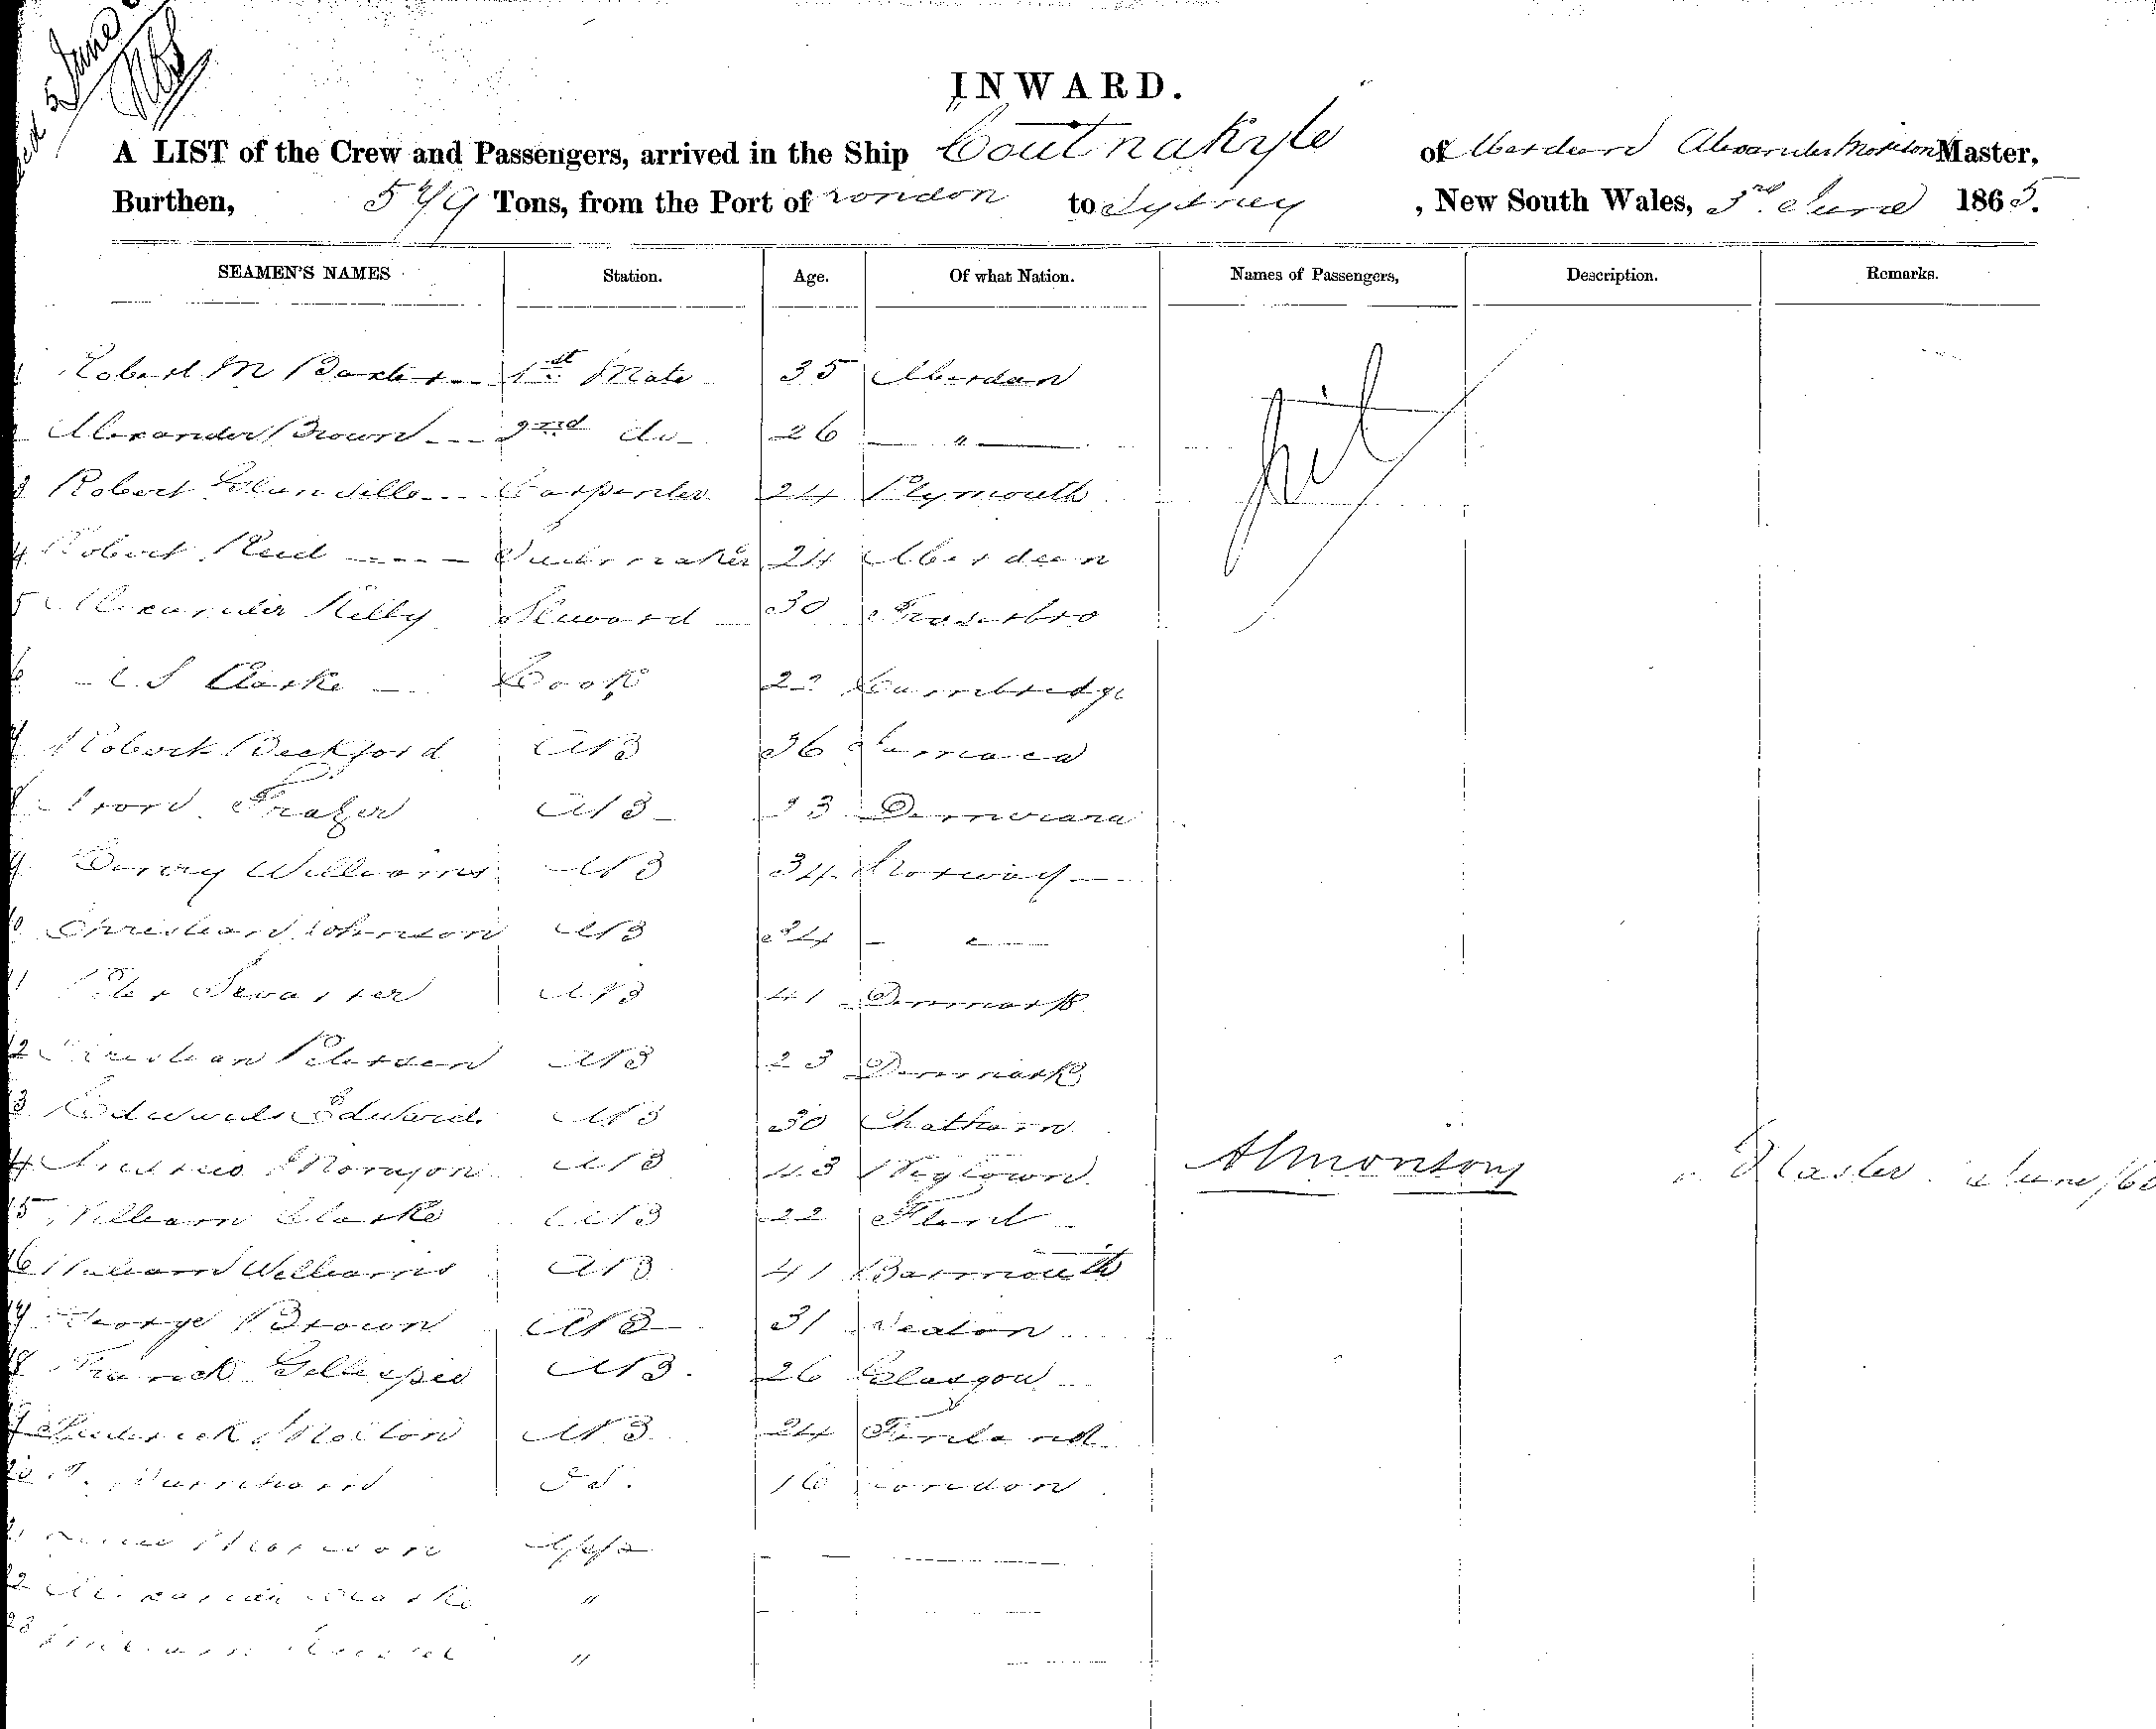 5 June
INWARD.
A LIST of the Crew and Passengers, arrived in the Ship Coutnakyle of Aberdeen Alexander Morison Master,
Burthen, 579 Tons, from the Port of London to Sydney, New South Wales, 3rd June 1865.
SEAMEN'S NAMES Station. Age. Of what Nation. Names of Passengers, Description. Remarks.
1 Robert M Baxter 1st Mate 35 Aberdeen
2 Alexander Brown 2nd do 26 "
3 Robert Glanville Carpenter 24 Plymouth
4 Robert Reid 24 Aberdeen
5 Alexander Kelby Steward 30 Fraserbro
6 S Clarke Cook Cambridge
7 Robert Beckford AB 36 Jamaca
8 Frazer AB Demerara
9 Henry Williams AB 34 Norway
10 Christian Johnson AB 24
11 Peter AB 41 Denmark
12 Christian Petersen AB 23 Denmark
13 Edward Edwards AB 30 Chatham
14 Andrew Morrison AB 43 Wigtown
Nil
15 William Clarke AB 22 Flint
16 William Williams AB 41 Barmouth
AMorison Master June/65
17 George Brown AB 31 Seaton
18 Francis Gillespie AB. 26 Glasgow
19 Frederick AB 24 Finland
20 OS. 16 London
21 App
22 Alexander Clarke "
23 William "